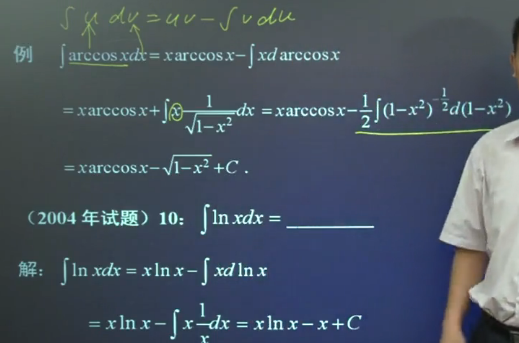 ∫ u dv = uv − ∫ v du
例 ∫ arccos x dx = x arccos x − ∫ x d arccos x
= x arccos x + ∫ x \frac{1}{\sqrt{1−x²}} dx = x arccos x − \frac{1}{2} ∫ (1−x²)^{−\frac{1}{2}} d(1−x²)
= x arccos x − \sqrt{1−x²} + C .
（2004 年试题）10： ∫ ln x dx = ________
解： ∫ ln x dx = x ln x − ∫ x d ln x
= x ln x − ∫ x \frac{1}{x} dx = x ln x − x + C